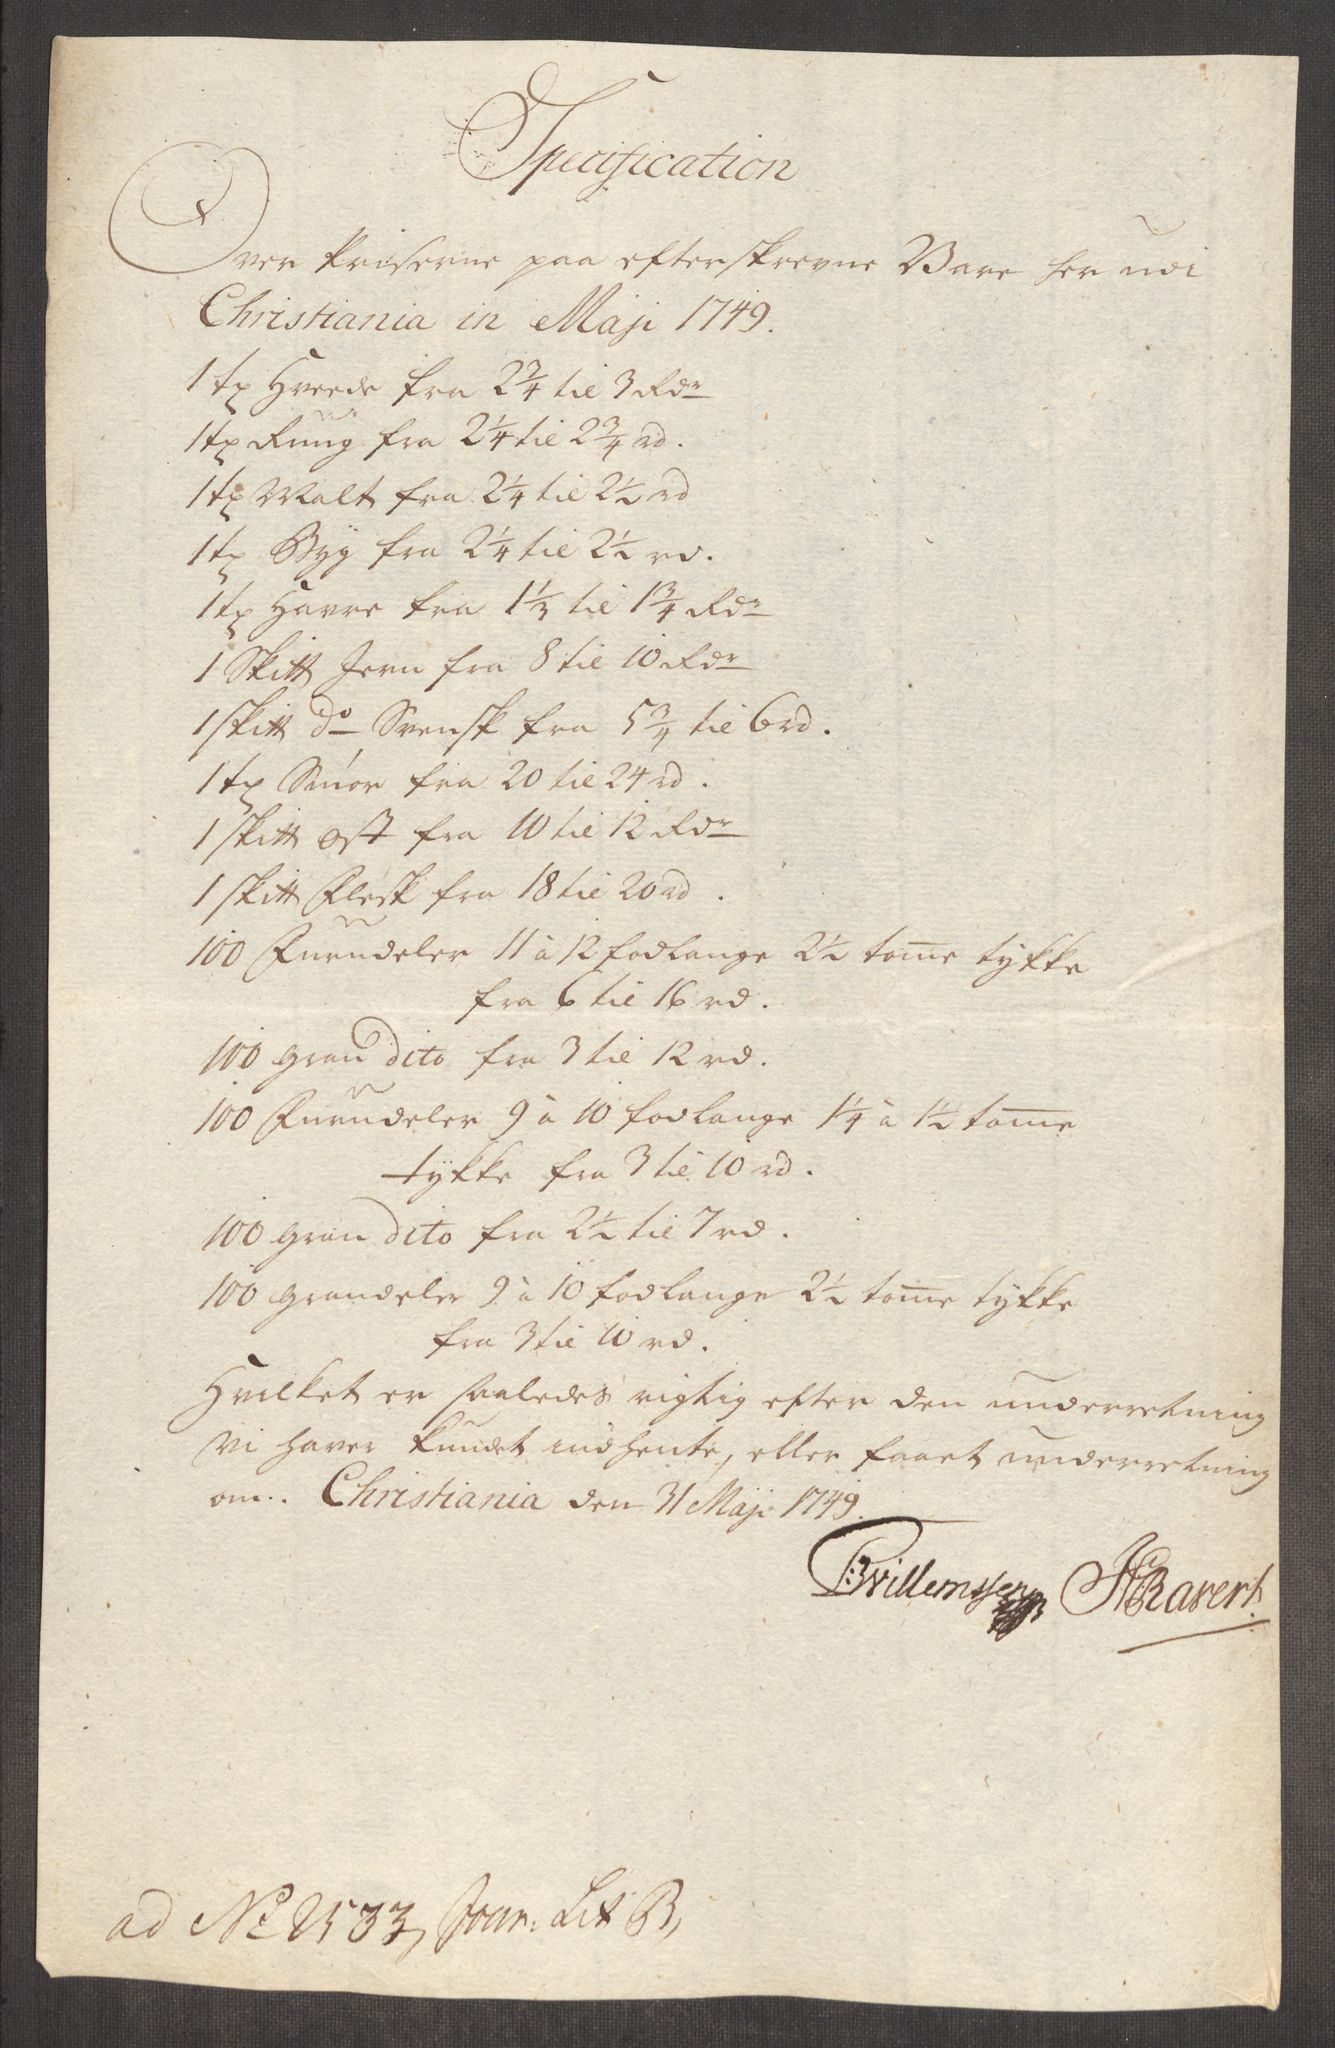 Specification
Over Priserne paa efterskrevne Vare her udi
Christiania in Maji 1749.
1 tp Hvede fra 2 3/4 til 3 Rdr
1 tp Rúúg fra 2 1/4 til 2 3/4 rd.
1 tp Malt fra 2 1/4 til 2 1/2 rd
1 tp Byg fra 2 1/4 til 2 1/2 rd.
1 tp Havre fra 1 1/3 til 1 3/4 Rdr
1 Skitt Jern fra 8 til 10 Rdr
1 skitt do Svensk fra 5 3/4 til 6 rd.
1 tp Smør fra 20 til 24 rd.
1 skitt ost fra 10 til 12 Rdr
1 skitt Flesk fra 18 til 20 rd.
100 Furudeler 11 à 12 fodlange 2 1/2 tome tykke
fra 6 til 16 rd.
100 gran dito fra 3 til 12 rd.
100 Furudeler 9 à 10 fodlange 1 1/4 à 1 1/2 tome
tykke fra 3 til 10 rd.
100 gran dito fra 2 1/2 til 7 rd.
100 grandeler 9 à 10 fodlange 2 1/2 tome tykke
fra 3 til 10 rd.
Hvilket er saaledes rigtig efter den underretning
vi haver kundet indhente, eller faaet underretning
om. Christiania den 31 Maji 1749.
Bvillemssen HRavert.
ad No 2533, Jour: Lit B,